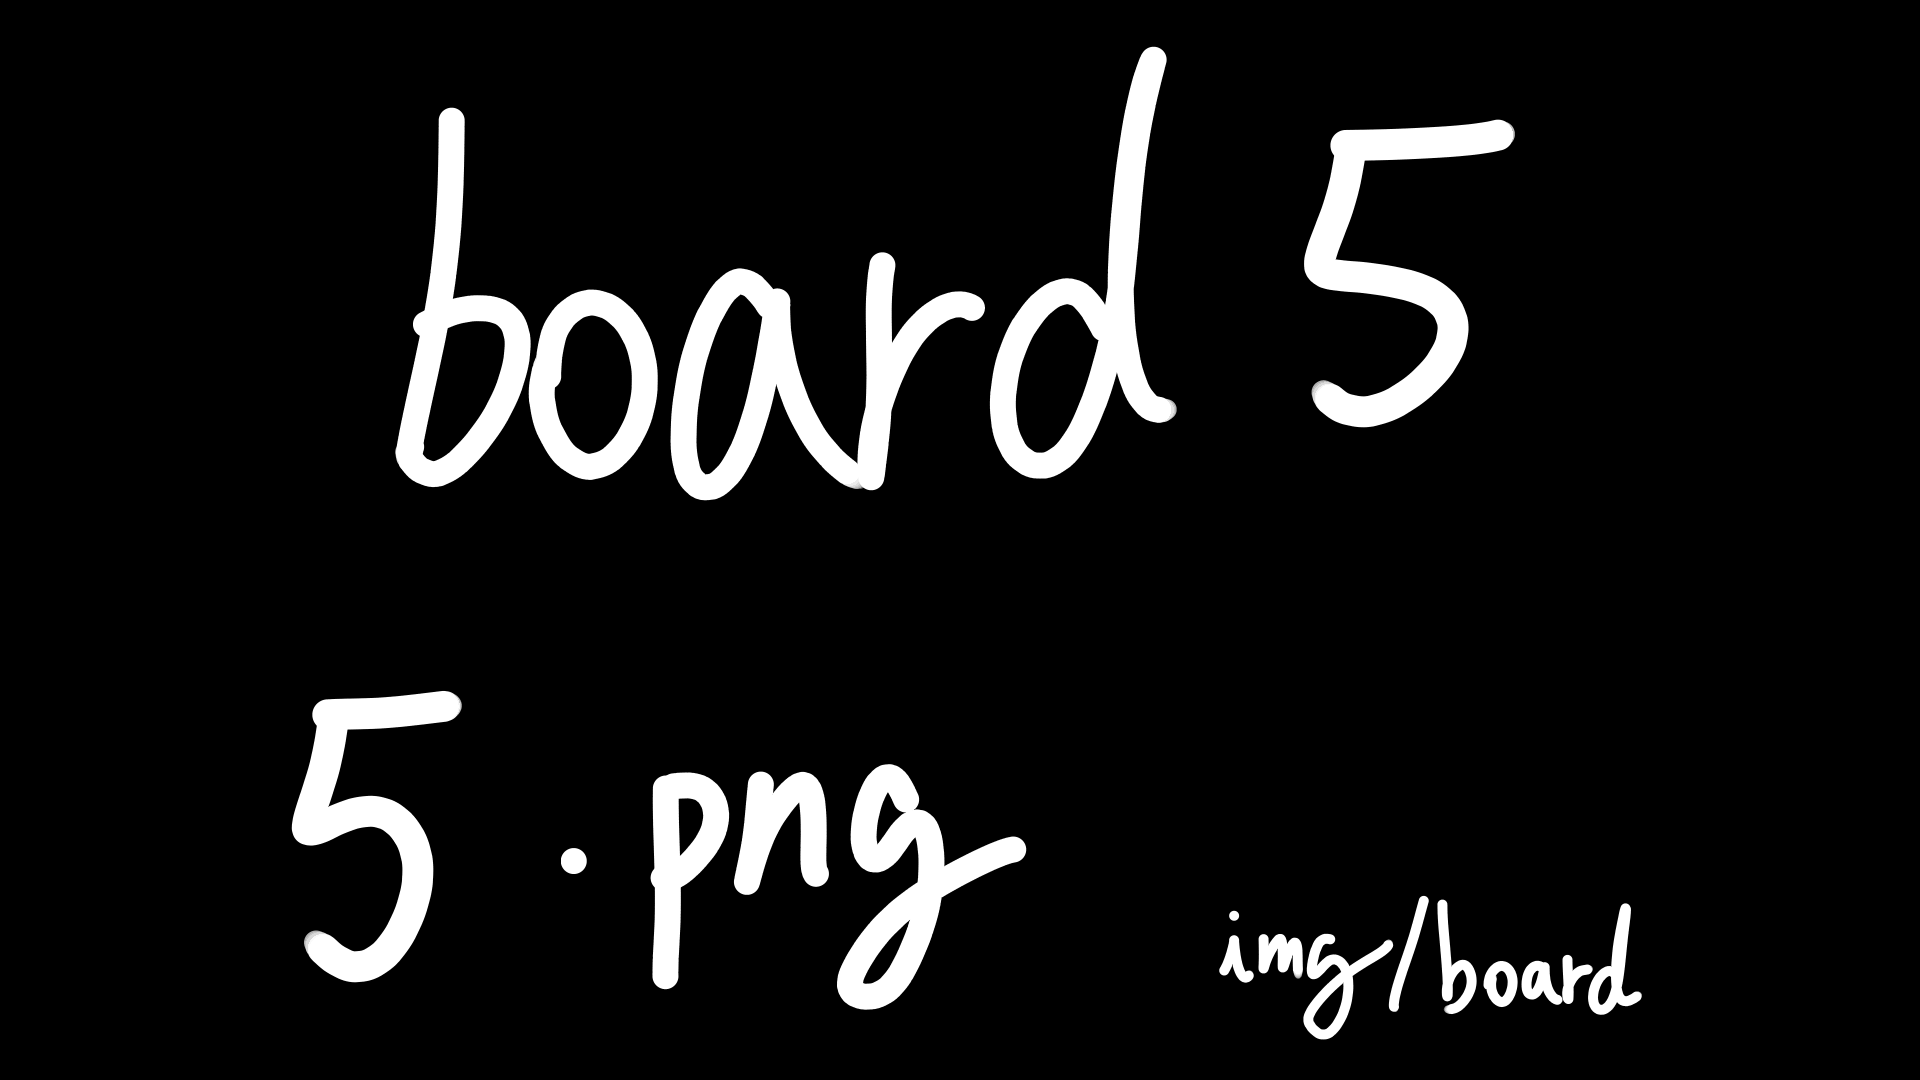 board 5
5.png
img/board